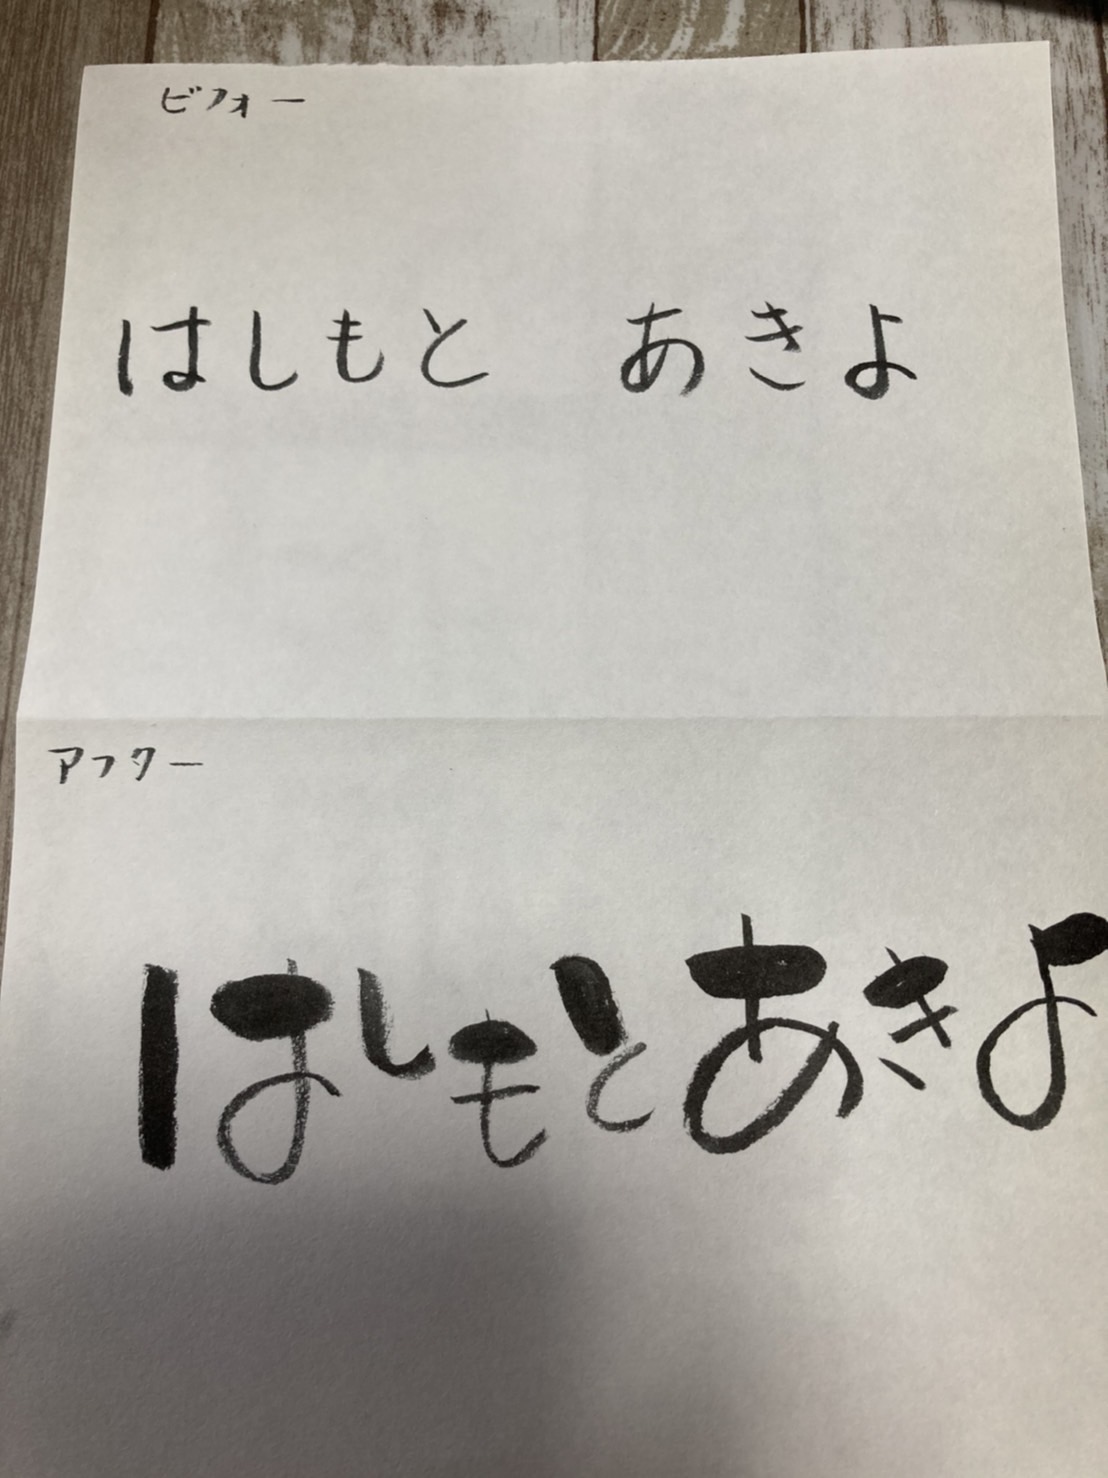 ビフォー
はしもと　あきよ
アフター
はしもとあきよ